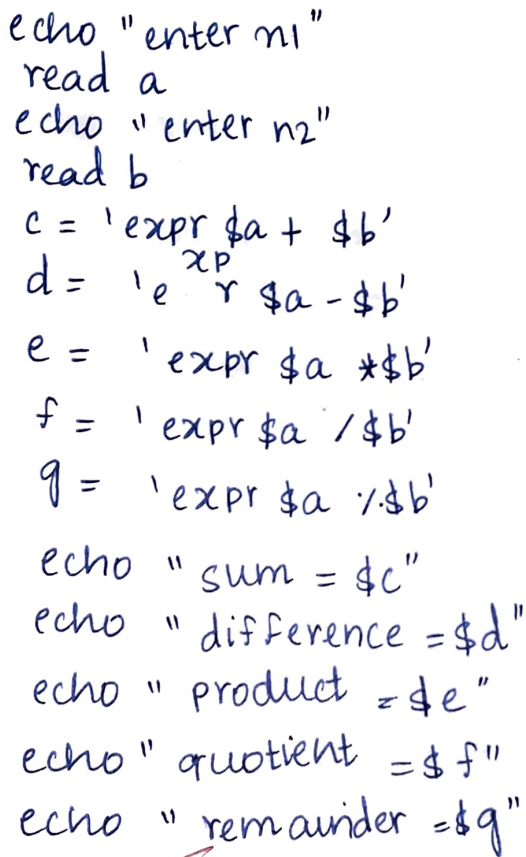 echo "enter n1"
read a
echo "enter n2"
read b
c = 'expr $a + $b'
d = 'expr $a - $b'
e = 'expr $a *$b'
f = 'expr $a /$b'
g = 'expr $a %$b'
echo "sum = $c"
echo "difference =$d"
echo "product =$e"
echo "quotient =$f"
echo "remainder =$g"